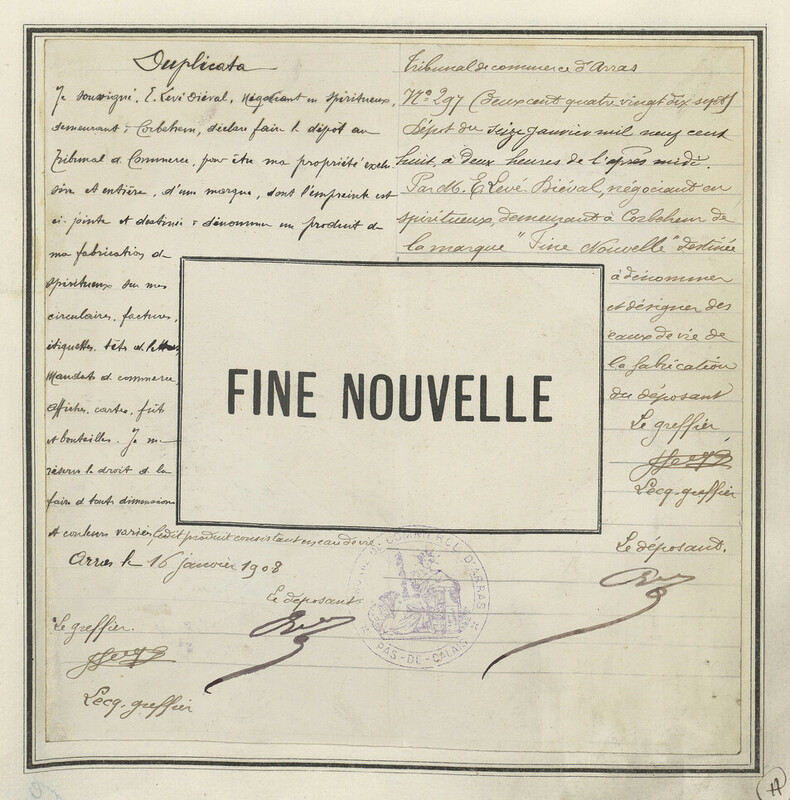 Duplicata
Je soussigné, E. Levé Diéval, négociant en spiritueux,
demeurant à Corbehem, déclare faire le dépôt au
Tribunal de Commerce, pour être ma propriété exclu
sive et entière, d'une marque, dont l'empreinte est
ci-jointe et destinée à dénommer un produit de
ma fabrication de
spiritueux sur mes
circulaires, factures,
étiquettes, têts de lettres,
Mandats de commerce
affiches, cartes, fûts
et bouteilles. Je me
réserve le droit de la
faire de toute dimension
et couleurs variées, ledit produit consistant en eau de vie.
Arras le 16 janvier 1908
Le déposant
Le greffier.
Lecq. greffier
Tribunal de commerce d'Arras
N° 297 (deux cent quatre vingt dix sept)
Dépôt du seize janvier mil neuf cent
huit, à deux heures de l'après midi.
Par M. E. Levé-Diéval, négociant en
spiritueux, demeurant à Corbehem de
la marque "Fine Nouvelle" destinée
à dénommer
et désigner des
eaux de vie de
la fabrication
du déposant
Le greffier
Lecq. greffier
Le déposant.
FINE NOUVELLE
DE COMMERCE D'ARRAS
PAS-DE-CALAIS